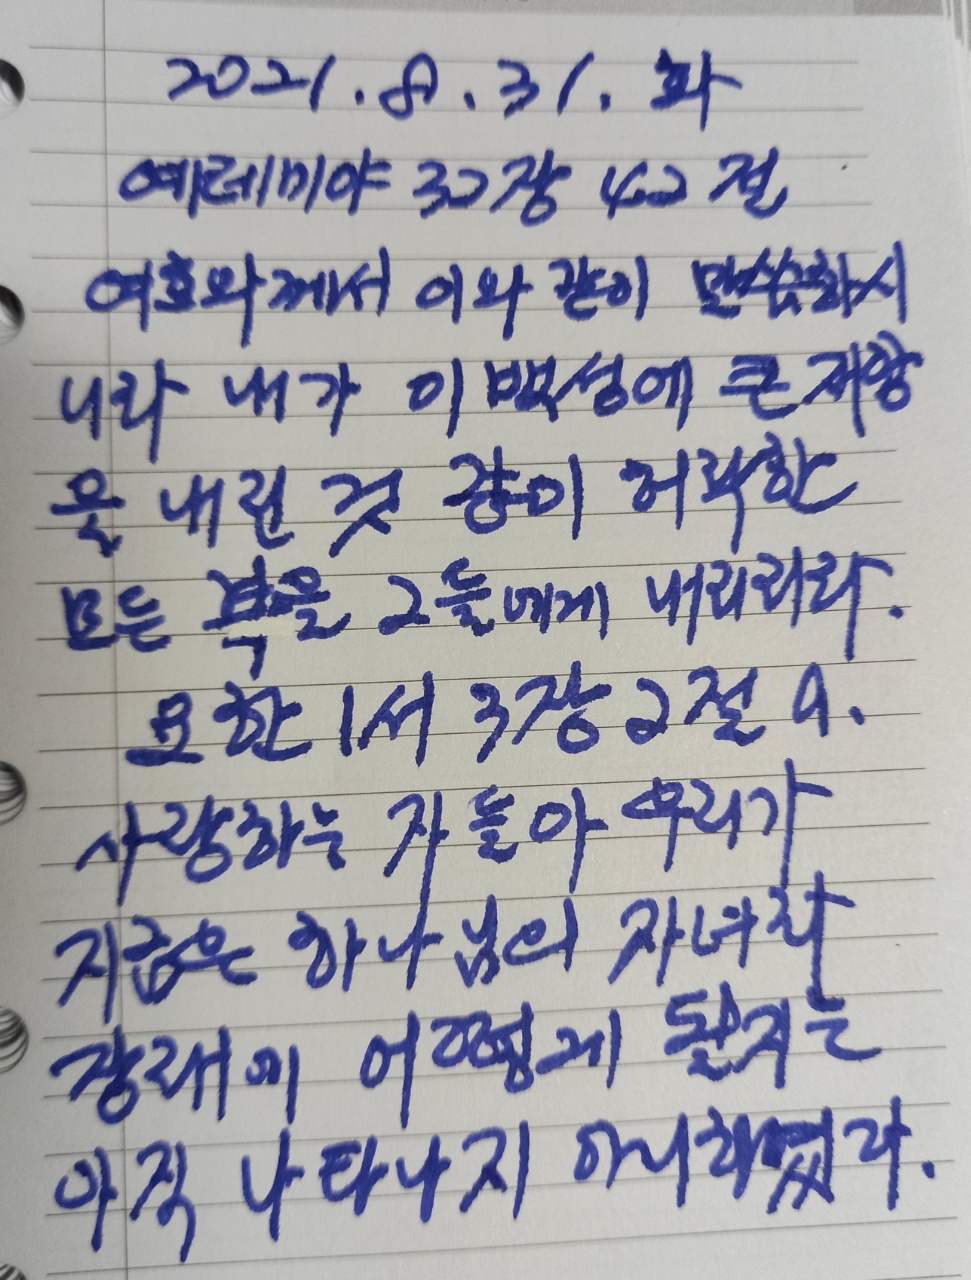 2021. 8. 31. 화
예레미야 32장 42절
여호와께서 이와 같이 말씀하시
니라 내가 이 백성에 큰 재앙
을 내린 것 같이 허락한
모든 복을 그들에게 내리리라.
요한1서 3장 2절 a.
사랑하는 자들아 우리가
지금은 하나님의 자녀라
장래에 어떻게 될지는
아직 나타나지 아니하였으나.